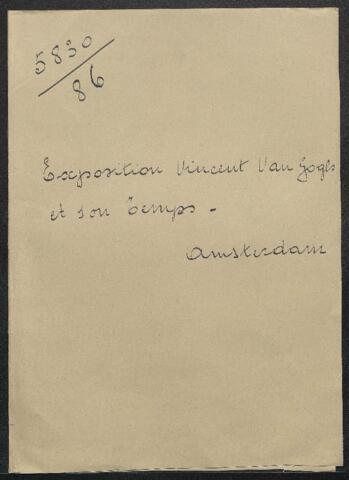 5830
86
Exposition Vincent Van Gogh
et son temps -
Amsterdam